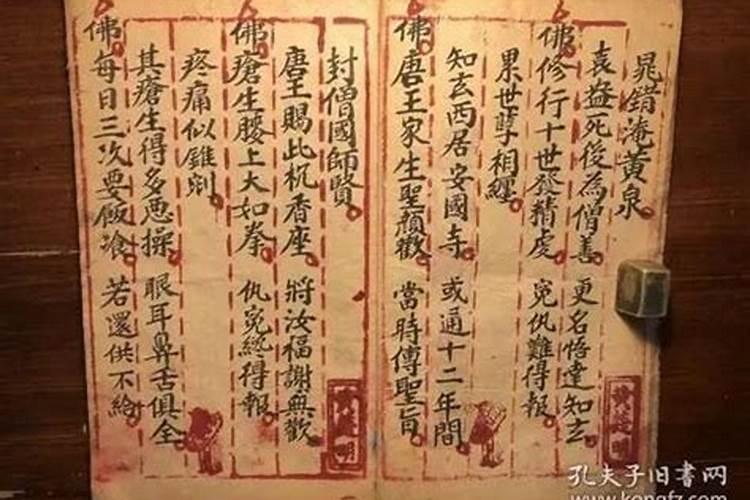 晁錯淹黃泉
袁盎死後為僧善 更名悟達知玄
佛修行十世發精虔 冤仇難得報
累世孽相纏
知玄西居安國寺 或通十二年間
佛唐王家生聖顏歡 當時傳聖旨
封僧國師賢
唐王賜此杌香座 將汝福謝無歡
佛瘡生腰上大如拳 仇冤終得報
疼痛似錐剜
其瘡生得多悪操 眼耳鼻舌俱全
佛每日三次要飯飡 若還供不給
孔夫子旧書网
www.kongfz.com